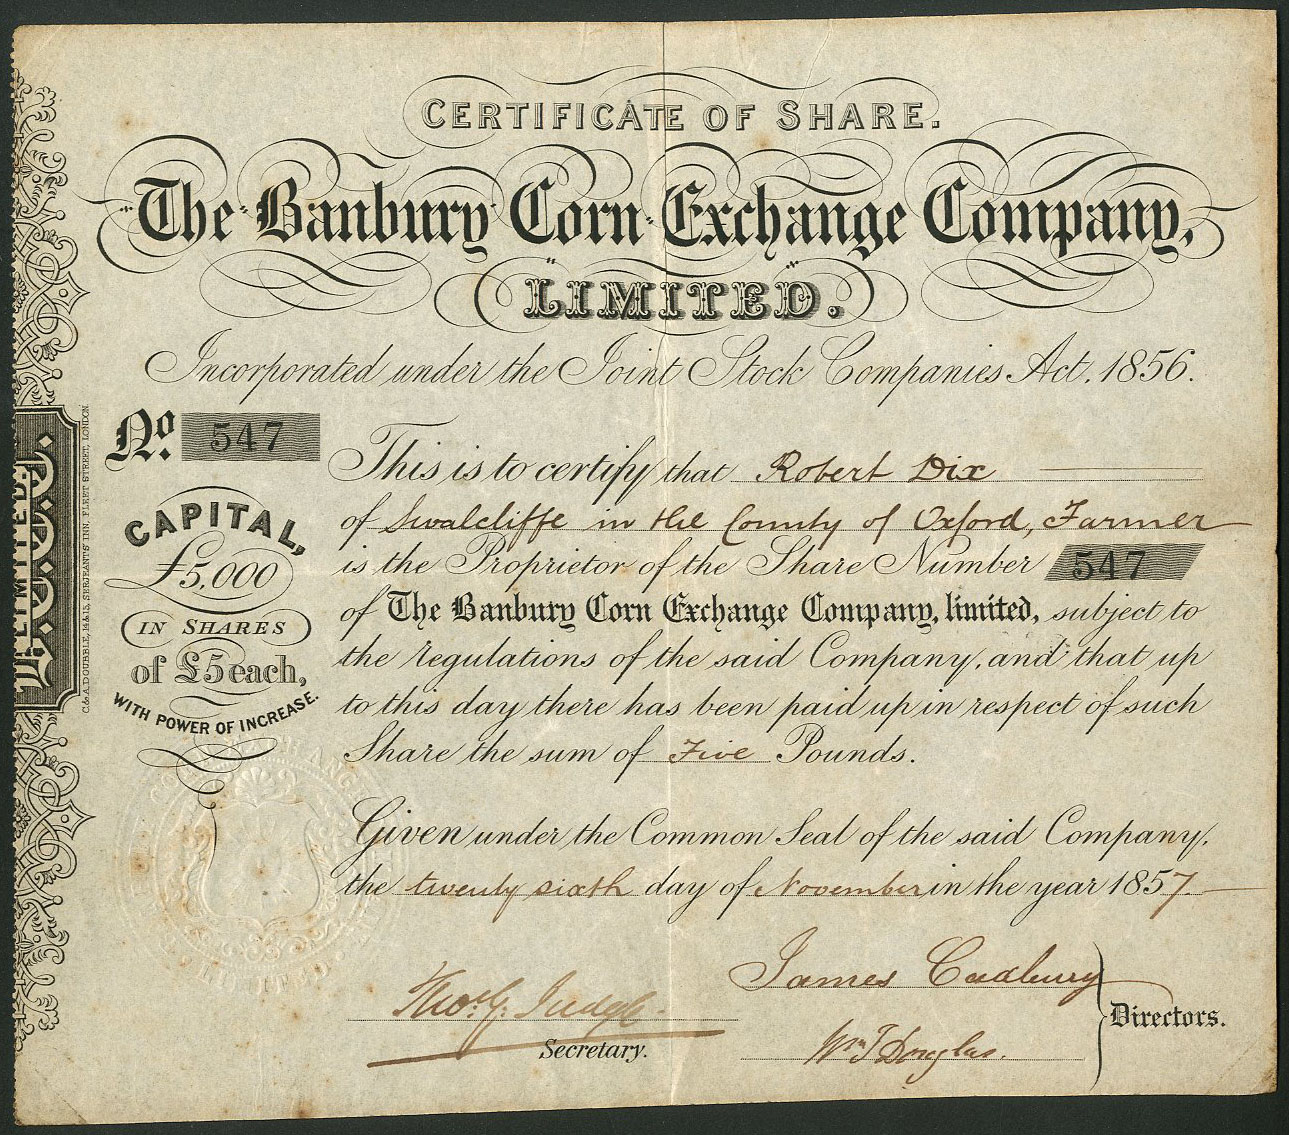 CERTIFICATE OF SHARE.
The Banbury Corn Exchange Company,
LIMITED.
Incorporated under the Joint Stock Companies Act. 1856.
No. 547
CAPITAL,
£5,000
IN SHARES
of £5 each,
WITH POWER OF INCREASE.
This is to certify that Robert Dix
of Swalcliffe in the County of Oxford, Farmer
is the Proprietor of the Share Number 547
of The Banbury Corn Exchange Company, limited, subject to
the regulations of the said Company, and that up
to this day there has been paid up in respect of such
Share the sum of Five Pounds.
Given under the Common Seal of the said Company,
the twenty sixth day of November in the year 1857
Thos. G. Judge.
Secretary.
James Cadbury
Wm T Douglas.
Directors.
C. & A. DOUBBLE, 14 & 15, SERJEANTS' INN, FLEET STREET, LONDON.
LIMITED